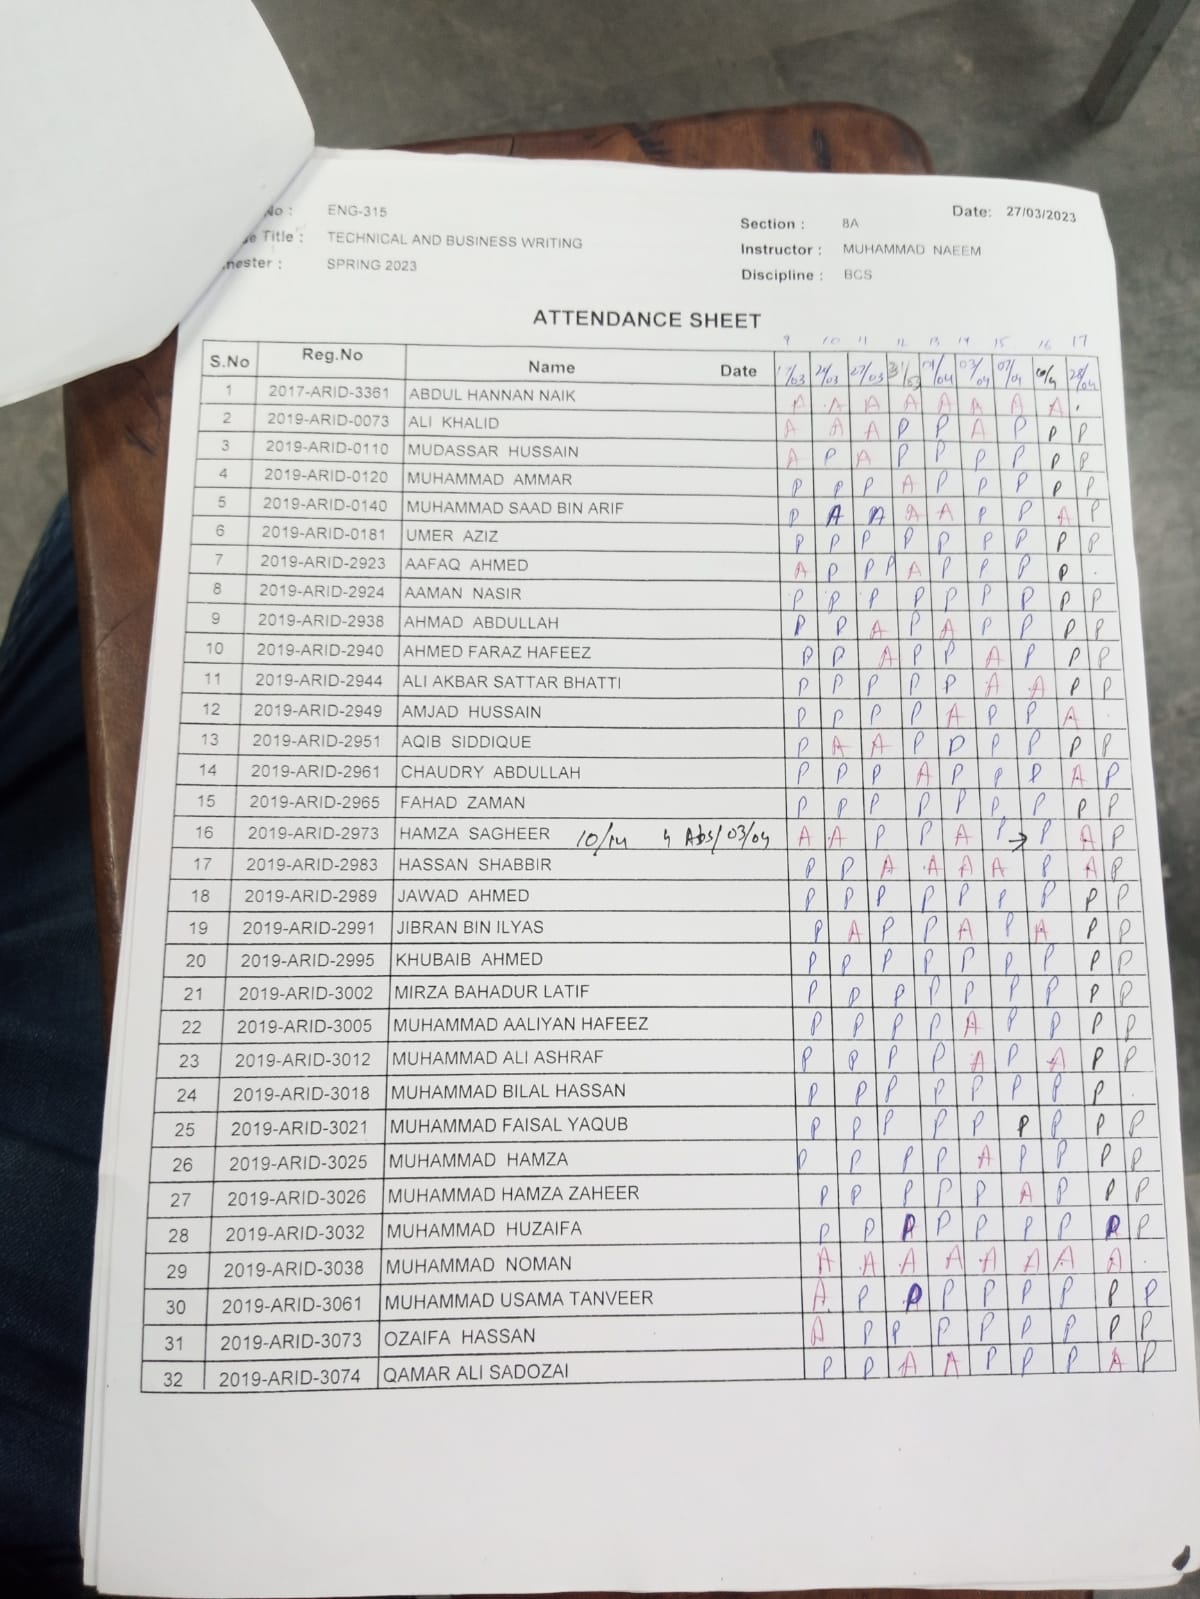 No : ENG-315
Title : TECHNICAL AND BUSINESS WRITING
mester : SPRING 2023
Date: 27/03/2023
Section : 8A
Instructor : MUHAMMAD NAEEM
Discipline : BCS
ATTENDANCE SHEET
9 10 11 12 13 14 15 16 17
S.No Reg.No Name Date 17/03 24/03 27/03 31/03 03/04 07/04 28/04
1 2017-ARID-3361 ABDUL HANNAN NAIK A A A A A A A A .
2 2019-ARID-0073 ALI KHALID A A A P P A P P P
3 2019-ARID-0110 MUDASSAR HUSSAIN A P A P P P P P P
4 2019-ARID-0120 MUHAMMAD AMMAR P P P A P P P P P
5 2019-ARID-0140 MUHAMMAD SAAD BIN ARIF P A A A A P P A P
6 2019-ARID-0181 UMER AZIZ P P P P P P P P P
7 2019-ARID-2923 AAFAQ AHMED A P P P A P P P P .
8 2019-ARID-2924 AAMAN NASIR P P P P P P P P P
9 2019-ARID-2938 AHMAD ABDULLAH P P A P A P P P P
10 2019-ARID-2940 AHMED FARAZ HAFEEZ P P A P P A P P P
11 2019-ARID-2944 ALI AKBAR SATTAR BHATTI P P P P P A A P P
12 2019-ARID-2949 AMJAD HUSSAIN P P P P A P P A .
13 2019-ARID-2951 AQIB SIDDIQUE P A A P P P P P P
14 2019-ARID-2961 CHAUDRY ABDULLAH P P P A P P P A P
15 2019-ARID-2965 FAHAD ZAMAN P P P P P P P P P
16 2019-ARID-2973 HAMZA SAGHEER 10/14 4 Abs/03/04 A A P P A P → P A P
17 2019-ARID-2983 HASSAN SHABBIR P P A A A A P A P
18 2019-ARID-2989 JAWAD AHMED P P P P P P P P P
19 2019-ARID-2991 JIBRAN BIN ILYAS P A P P A P A P P
20 2019-ARID-2995 KHUBAIB AHMED P P P P P P P P P
21 2019-ARID-3002 MIRZA BAHADUR LATIF P P P P P P P P P
22 2019-ARID-3005 MUHAMMAD AALIYAN HAFEEZ P P P P A P P P P
23 2019-ARID-3012 MUHAMMAD ALI ASHRAF P P P P A P A P P
24 2019-ARID-3018 MUHAMMAD BILAL HASSAN P P P P P P P P .
25 2019-ARID-3021 MUHAMMAD FAISAL YAQUB P P P P P P P P P
26 2019-ARID-3025 MUHAMMAD HAMZA P P P P A P P P P
27 2019-ARID-3026 MUHAMMAD HAMZA ZAHEER P P P P P A P P P
28 2019-ARID-3032 MUHAMMAD HUZAIFA P P P P P P P P
29 2019-ARID-3038 MUHAMMAD NOMAN A A A A A A A A .
30 2019-ARID-3061 MUHAMMAD USAMA TANVEER A P P P P P P P P
31 2019-ARID-3073 OZAIFA HASSAN A P P P P P P P P
32 2019-ARID-3074 QAMAR ALI SADOZAI P P A A P P P A P